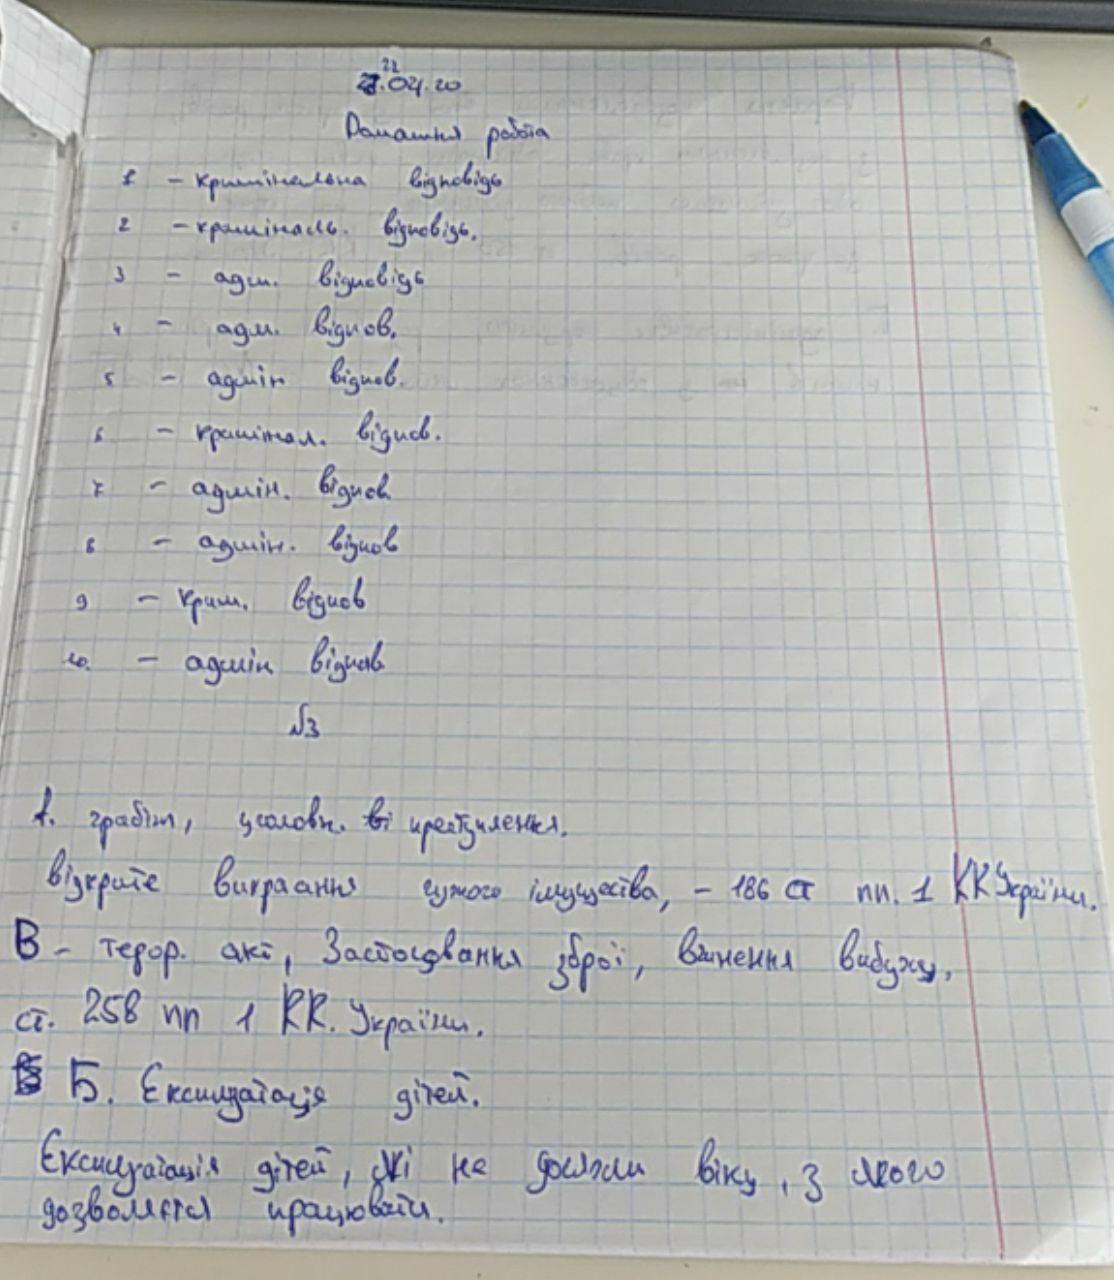 22.04.20
Домашня робота
1 - кримінальна відповідь
2 - криміналь. відповідь.
3 - адм. відповідь
4 - адм. відпов.
5 - адмін відпов.
6 - кримінал. відпов.
7 - адмін. відпов.
8 - адмін. відпов
9 - крим. відпов
10. - адмін відпов
№3
А. грабіж, уголовн. преступлення.
відкрите викраання чужого імущества, - 186 ст пп. 1 КК України.
В - терор. акт, Застосування зброї, вчинення вибуху,
ст. 258 пп 1 КК. України.
Б. Експлуатація дітей.
Експлуатація дітей, які не досягли віку, з якого
дозволяєтся працювати.